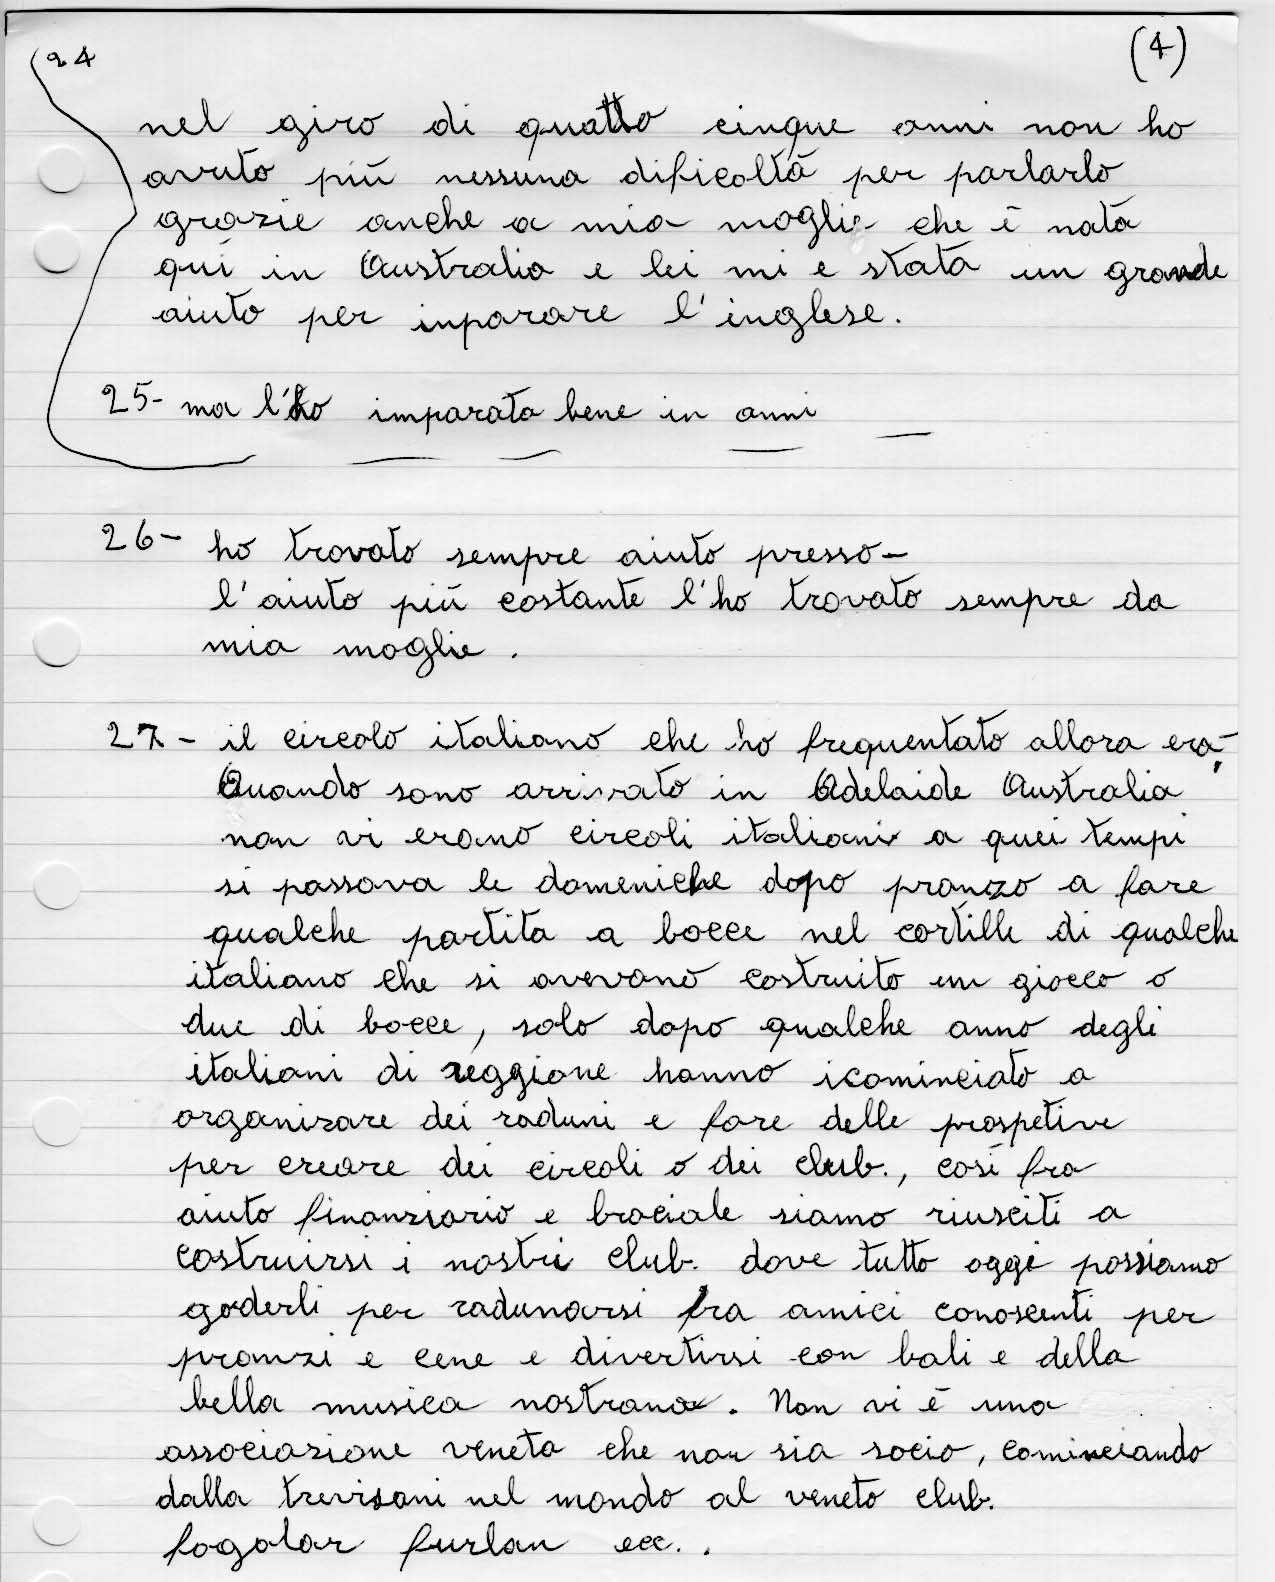 24
(4)
nel giro di quattro cinque anni non ho
avuto più nessuna dificoltà per parlarlo
grazie anche a mia moglie che è nata
qui in Australia e lei mi e stata un grande
aiuto per inparare l'inglese.
25- ma l'ho imparata bene in anni
26- ho trovato sempre aiuto presso-
l'aiuto più costante l'ho trovato sempre da
mia moglie.
27- il circolo italiano che ho frequentato allora era-
Quando sono arrivato in Adelaide Australia
non vi erano circoli italiani a quei tempi
si passava le domeniche dopo pranzo a fare
qualche partita a bocce nel cortille di qualche
italiano che si avevano costruito un giocco o
due di bocce, solo dopo qualche anno degli
italiani di reggione hanno icominciato a
organizare dei raduni e fare delle prospetive
per creare dei circoli o dei club., così fra
aiuto finanziario e braciale siamo riusciti a
costruirsi i nostri club. dove tutto oggi possiamo
goderli per radunarsi fra amici conoscenti per
pranzi e cene e divertirsi con bali e della
bella musica nostrana. Non vi è una
associazione veneta che non sia socio, cominciando
dalla trevisani nel mondo al veneto club.
fogolar furlan ecc..